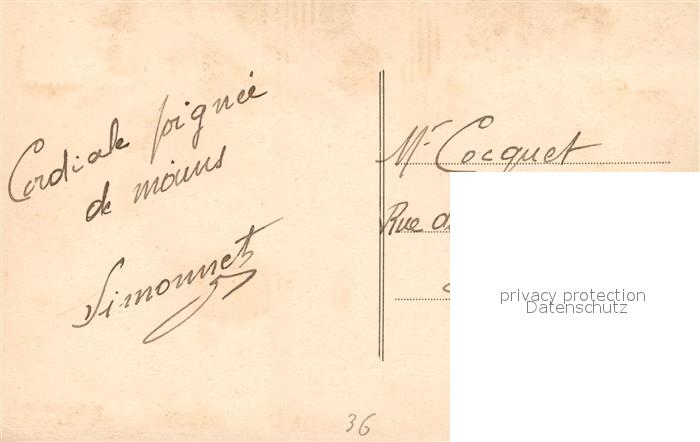 Cordiale poignée
de mains
Simonnet
Mr Cocquet
Rue d
privacy protection
Datenschutz
36